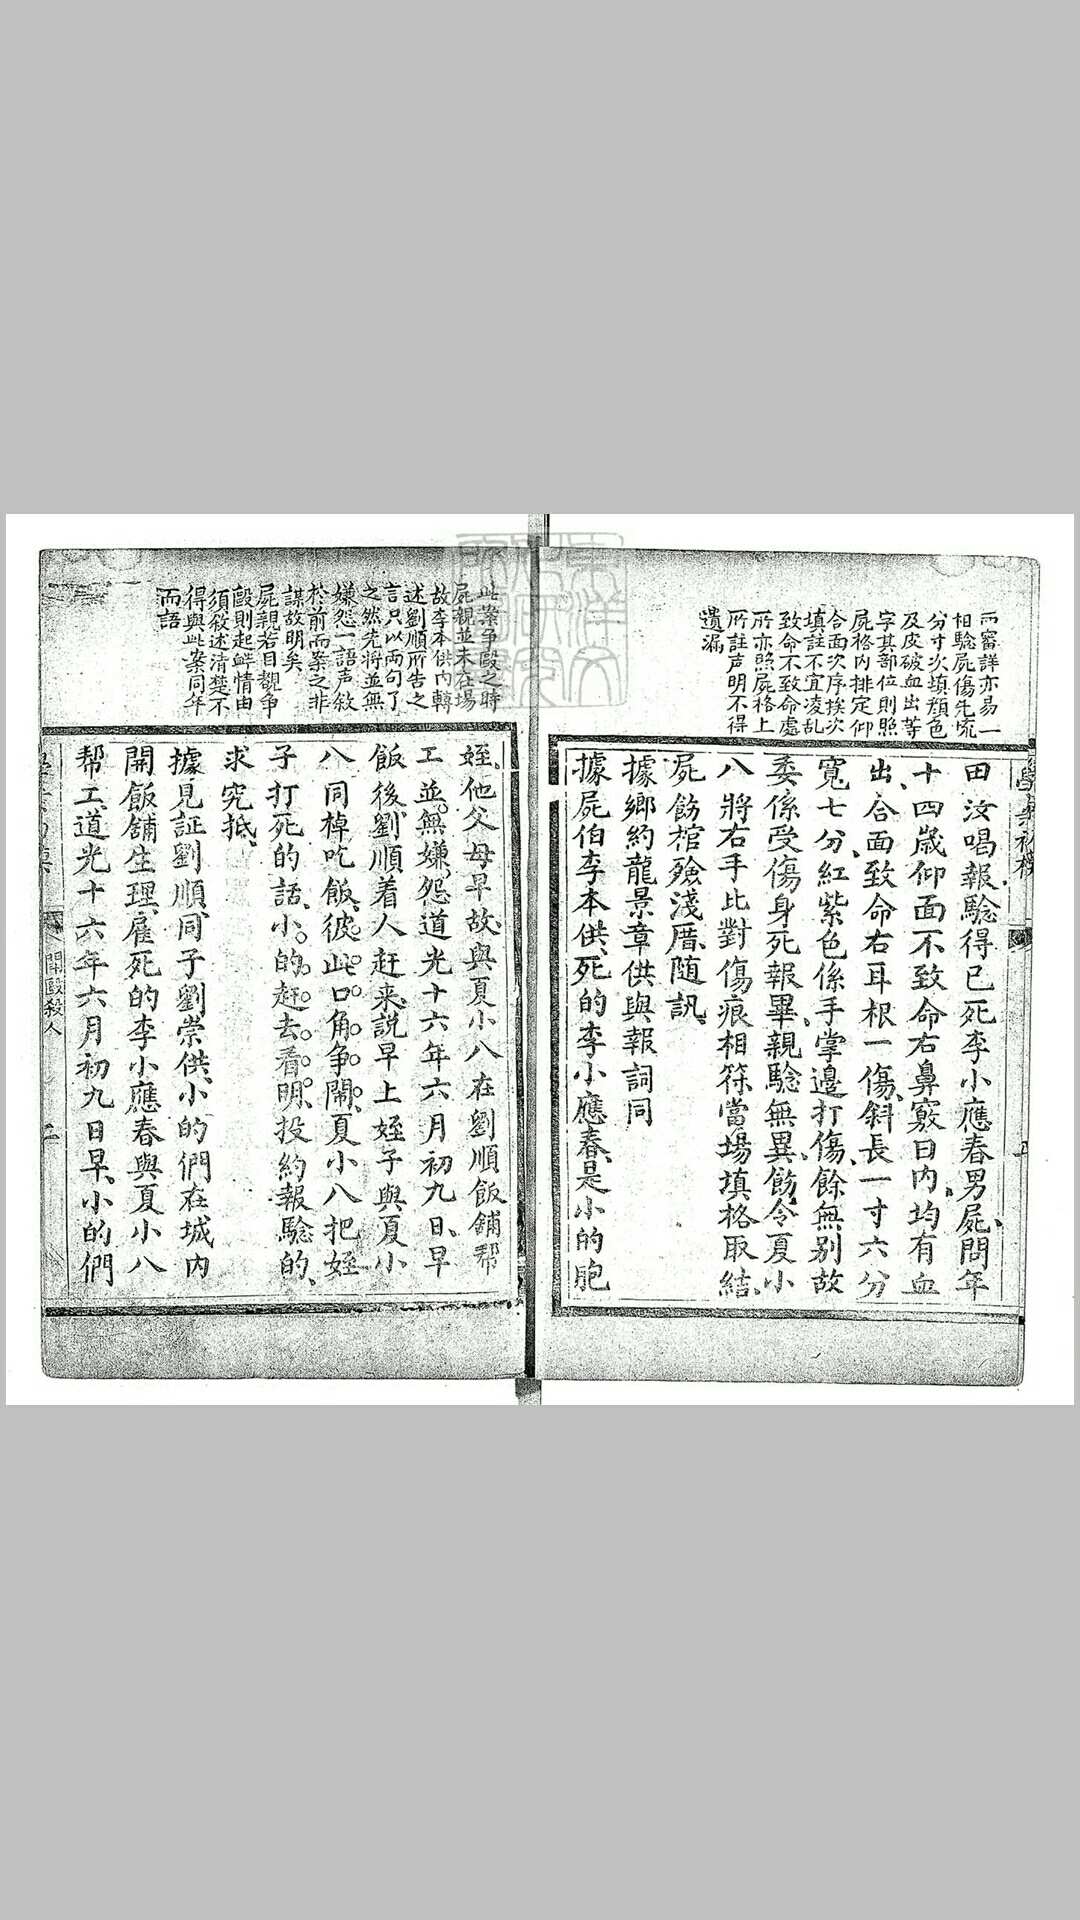 而審詳亦易一
相驗屍傷先�流
分寸次填顏色
及皮破血出等
字其部位則照
屍格内排定仰
合面次序挨次
填註不宜凌乱
致命不致命處
所亦照屍格上
所註声明不得
遺漏
田汝唱報驗得已死李小應春男屍問年
十四歲仰面不致命右鼻竅曰内均有血
出合面致命右耳根一傷斜長一寸六分
寬七分紅紫色係手掌邊打傷餘無別故
委係受傷身死報畢親驗無異飭令夏小
八將右手比對傷痕相符當場填格取結
屍飭棺殮淺厝随訊
據鄉約龍景章供與報詞同
據屍伯李本供死的李小應春是小的胞
此案争毆之時
屍親並未在場
故李本供内轉
述劉順所告之
言只以兩句了
之然先將並無
嫌怨一語声敘
於前而案之非
謀故明矣
屍親若目覩争
毆則起衅情由
須敘述清楚不
得與此案同年
而語
姪他父母早故與夏小八在劉順飯舖帮
工並無嫌怨道光十六年六月初九日早
飯後劉順着人赶来說早上姪子與夏小
八同棹吃飯彼此口角争鬧夏小八把姪
子打死的話小的赶去看明投約報驗的
求究抵
據見証劉順同子劉崇供小的們在城内
開飯舖生理雇死的李小應春與夏小八
帮工道光十六年六月初九日早小的們
鬥毆殺人
二